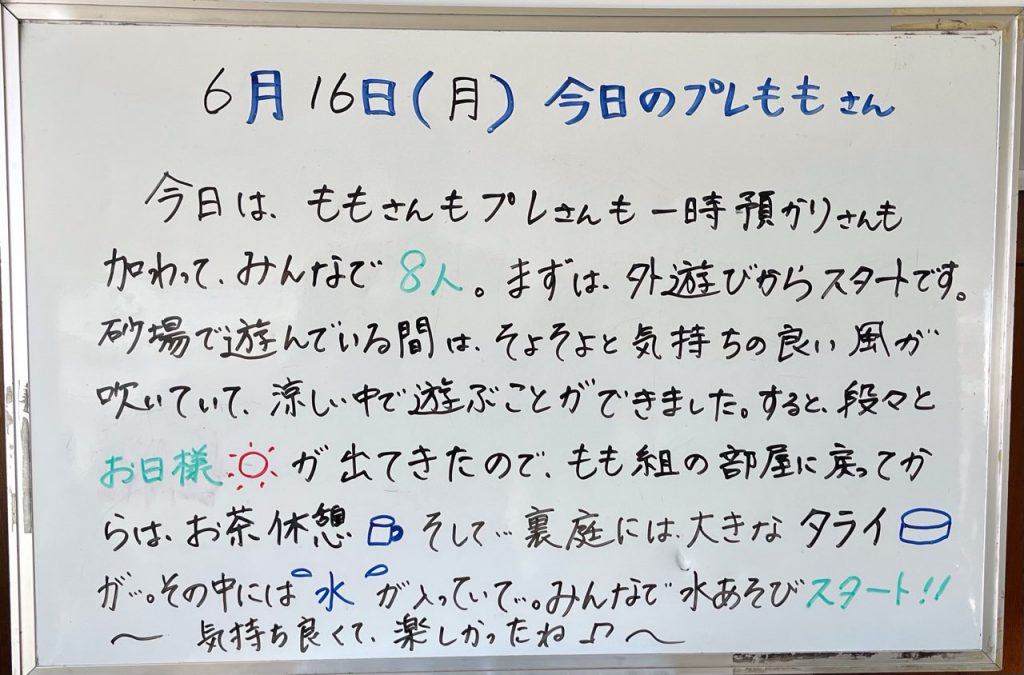 6月16日(月) 今日のプレももさん
今日は、ももさんもプレさんも一時預かりさんも
加わって、みんなで8人。まずは、外遊びからスタートです。
砂場で遊んでいる間は、そよそよと気持ちの良い風が
吹いていて、涼しい中で遊ぶことができました。すると、段々と
お日様が出てきたので、もも組の部屋に戻ってか
らは、お茶休憩 そして…裏庭には、大きなタライ
が…。その中には水が入っていて…。みんなで水あそびスタート!!
〜 気持ち良くて、楽しかったね♪〜